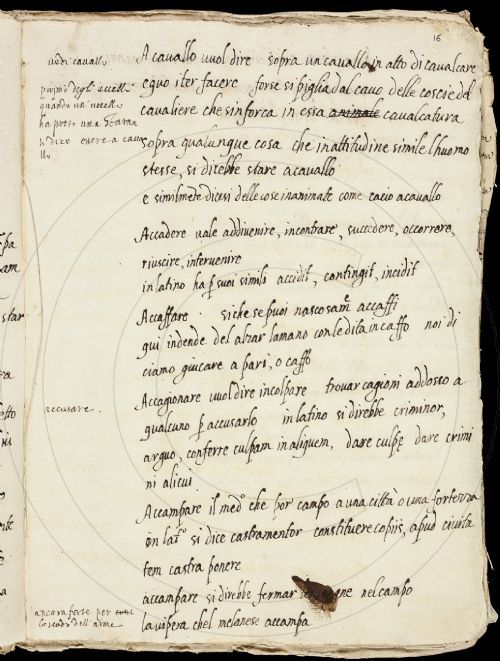 16
vedi cavall
A cavallo vuol dire sopra un cavallo in alto di cavalcare
equo iter facere forse si piglia dal cavo delle coscie del
cavaliere che sinforca in essa animale cavalcatura
sopra qualunque cosa che in attitudine simile l'huomo
stesse, si direbbe stare a cavallo
e similmẽte dicesi delle cose inanimate come cacio a cavallo
quando un uccell
ha preso una starna
si dice essere a cava
llo
Accadere vale addivenire, incontrare, succedere, occorrere,
riuscire, intervenire
in latino ha p suoi simili accidit, contingit, incidit
Accaffare siche se puoi nascosamẽ accaffi
qui indende del alzar la mano con le dita in caffo noi di
ciamo giucare a pari, o caffo
Accagionare vuol dire incolpare trovar cagioni addosso a
accusare.
qualcuno p accusarlo in latino si direbbe criminor,
arguo, conferre culpam in aliquem, dare culpę dare crimi
ni alicui
Accampare il medº che por campo a una città o una fortezza
in latº si dice castrametor constituere copiis, apud civita
tem castra ponere
accampare si direbbe fermar nel campo
ancora forse per
lo scudo dell'arme
la vipera chel melanese accampa